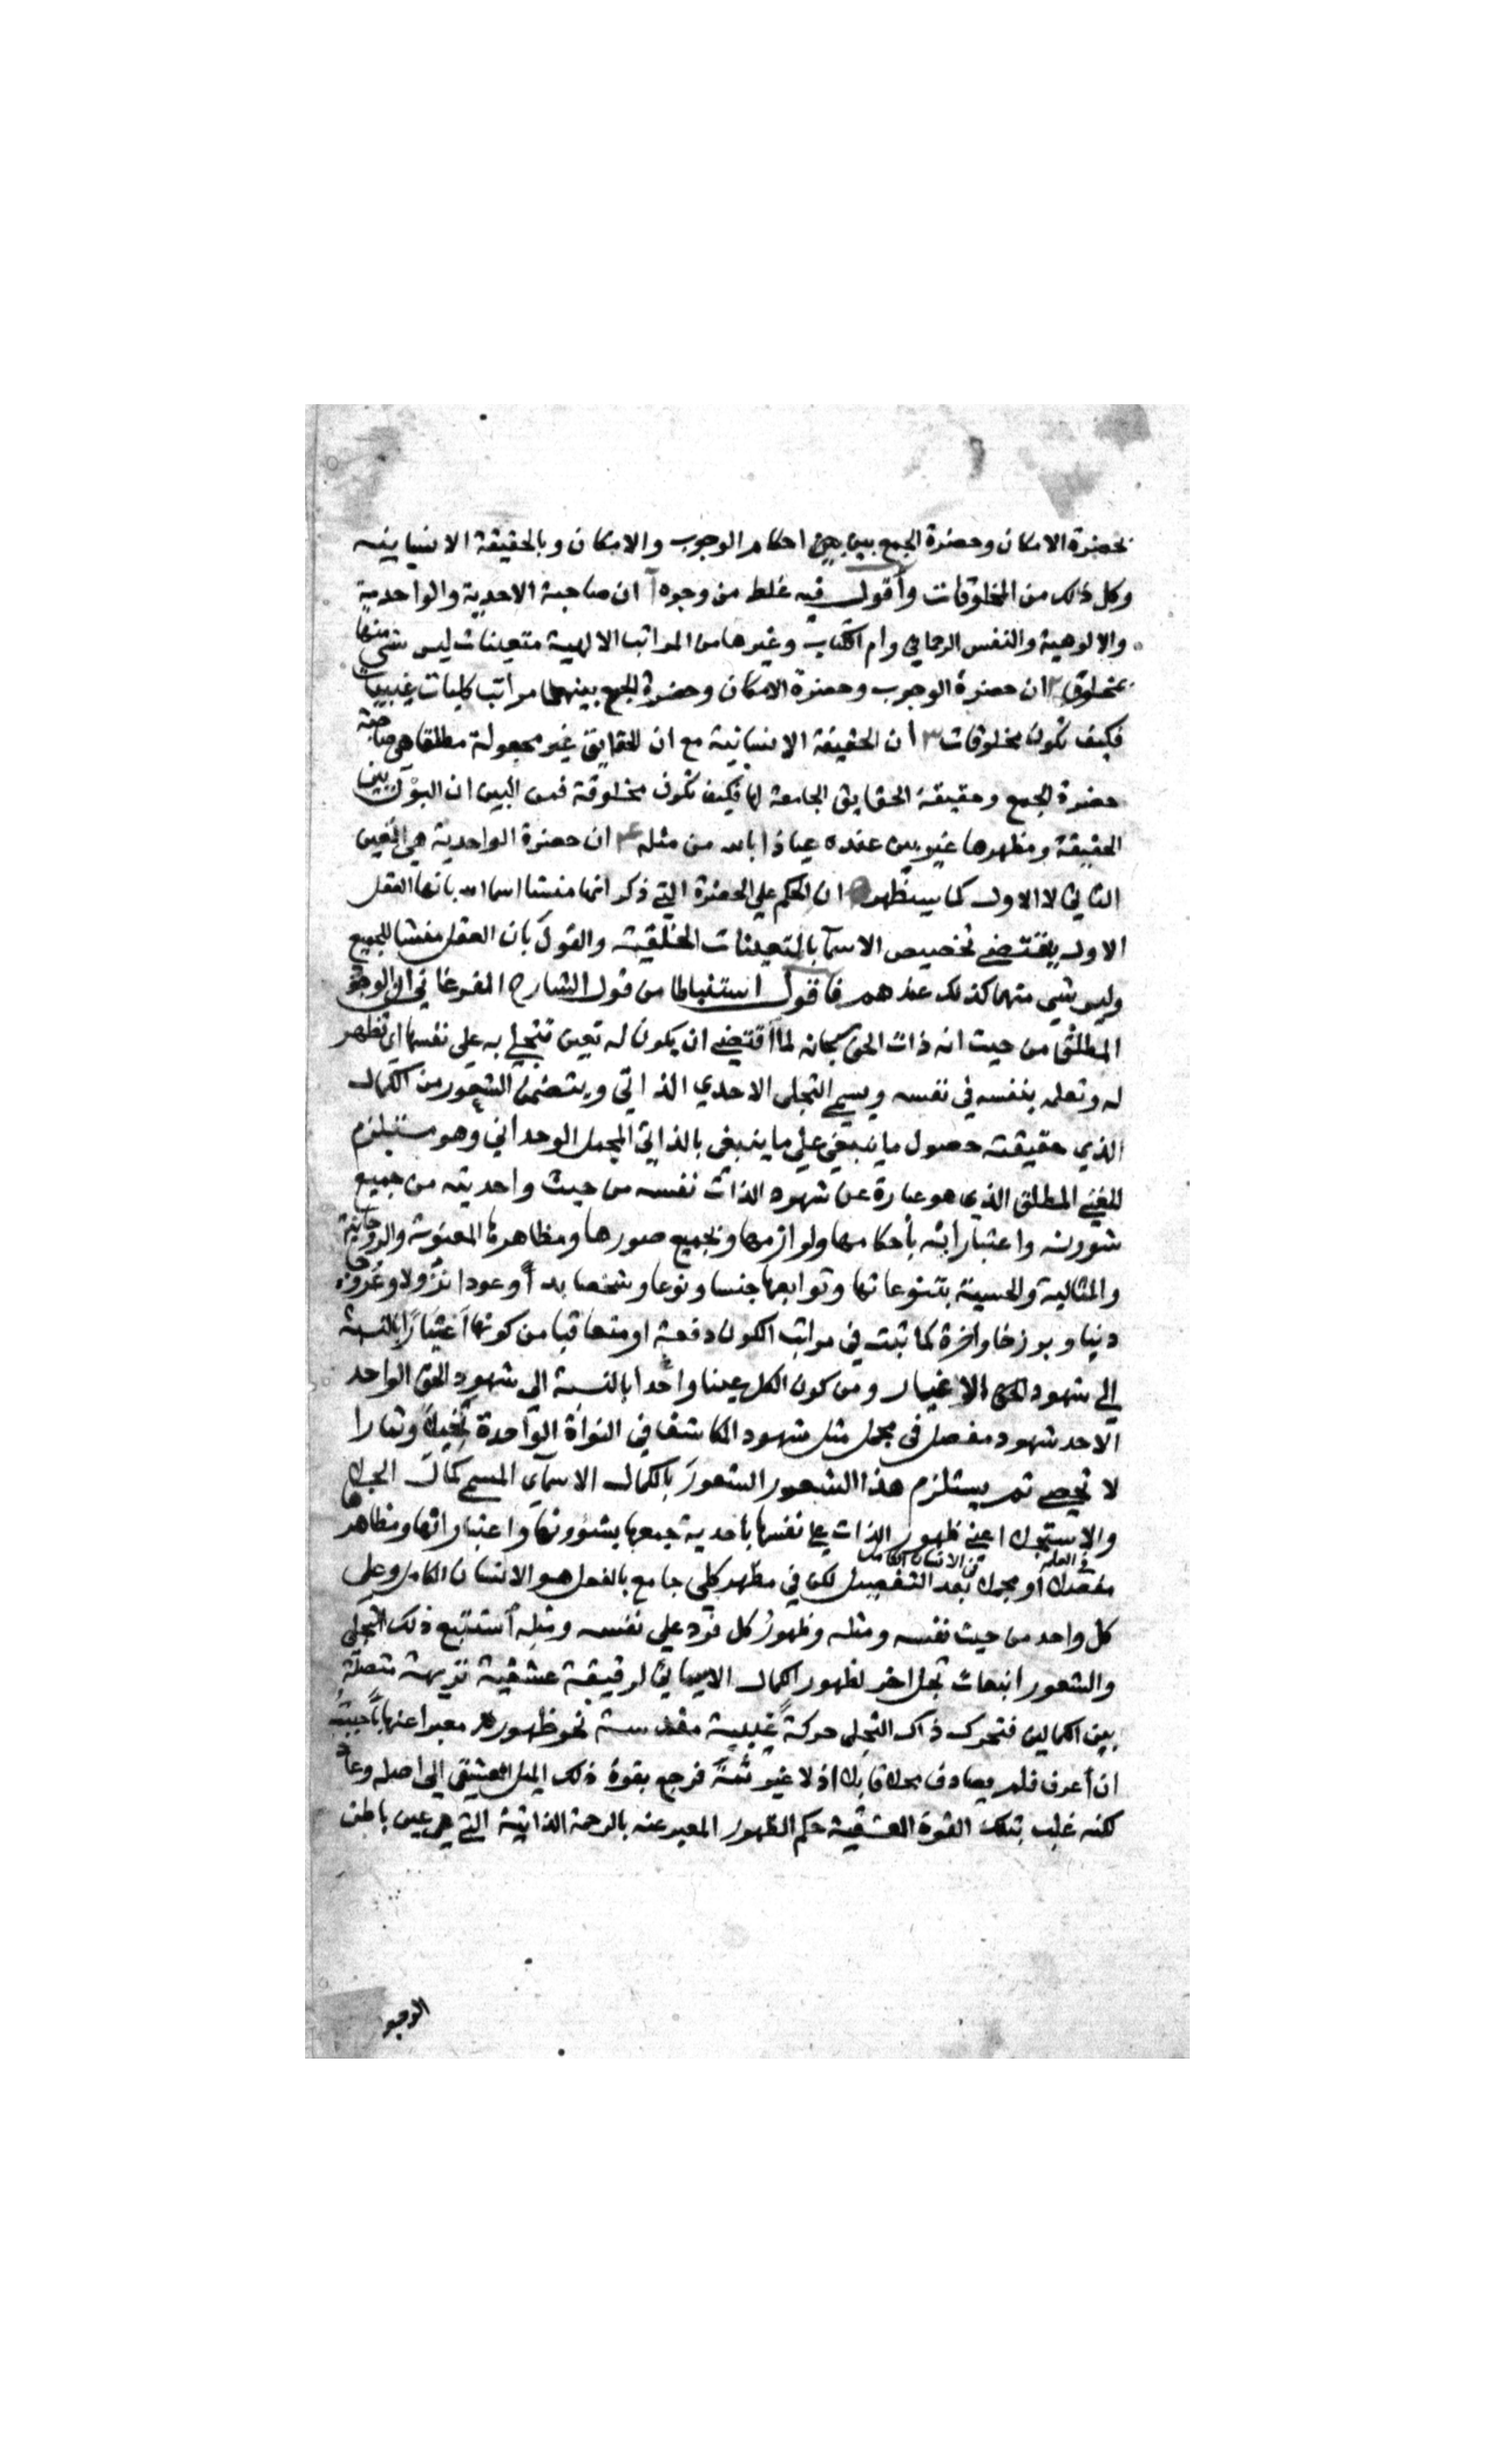 بحضرة الامكان وحضرة الجمع بين احكام الوجوب والامكان وبالحقيقة الانسانيه
وكل ذلك من المخلوقات وأقول فيه غلط من وجوه أ ان صاحبة الاحدية والواحدية
والالوهية والنفس الرحماني وام الكتاب وغيرها من المراتب الالهية متعينات ليس شي منها
بمخلوق ٢ ان حضرة الوجوب وحضرة الامكان وحضرة الجمع بينهما مراتب كليات غيبيات
فكيف تكون مخلوقات ٣ أن الحقيقة الانسانية مع ان الحقايق غير مجعولة مطلقا هي صاحبة
حضرة الجمع وحقيقة الحقايق الجامعة لها فكيف تكون مخلوقة فمن البين ان البون بين
الحقيقة ومظهرها غير بين عنده عياذا بالله من مثله ۴ ان حضرة الواحدية هي التعين
الثاني لا الاول كما سيظهر ان الحكم علي الحضرة التي ذكر انها منشا اسما الله بانها العقل
الاول يقتضي تخصيص الاسمآ بالمتعينات الخلقية والقول بان العقل منشا للجميع
وليس شي منهما كذلك عندهم فأقول استنباطا من قول الشارح الفرغاني ان الوجود
المطلق من حيث انه ذات الحق سبحانه لما اقتضي ان يكون له تعين تتجلي به علي نفسها اي تظهر
له وتعلمه بنفسه في نفسه ويسمي التجلي الاحدي الذاتي ويتضمن الشعور من الكمال
الذي حقيقته حصول ما ينبغي علي ما ينبغي بالذاتي المجمل الوحداني وهو مستلزم
للغني المطلق الذي هو عبارة عن شهود الذات نفسه من حيث واحديته من جميع
شوونه واعتباراته بأحكامها ولوازمها وبجميع صورها ومظاهرها المعنوية والروحانية
والمثالية والحسية بتنوعاتها وتوابعها جنسا ونوعا وشخصا بدأ وعودا نزولا وعروجا
دنيا وبرزخا واخرة كما ثبت في مراتب الكون دفعة او متعاقبا من كونها اعتبارا بالنسبة
إلي شهود الحق الاغيار ومن كون الكل عينا واحدا بالنسبة الي شهود الحق الواحد
الاحد شهود مفصل في مجمل مثل شهود المكاشف في النواة الواحدة نخيلا وثمارا
لا تحصي ثم يستلزم هذا الشعور الشعور بالكمال الاسمآي المسمي كمال الجلاء
والاستجلاء اعني ظهور الذات علي نفسها باحدية جمعها بشوونها واعتباراتها ومظاهرها
في العلم من الانسان الكامل
مفصلا أو مجملا بعد التفصيل لكن في مظهر كلي جامع بالفعل هو الانسان الكامل وعلي
كل واحد من حيث نفسه ومثله وظهور كل فرد علي نفسه ومثله استتبع ذلك التجلي
والشعور انبعاث تجل اخر لظهور الكمال الاسمائي لرقيقة عشقية نزيهة متصلة
بين الكمالين فتحرك ذاك التجلي حركة غيبية مقدسة نحو ظهوره معبرا عنها بأحببت
ان أعرف فلم يصادف محلا قابلا اذ لا غير ثمة فرجع بقوة ذلك الميل العشقي الي اصله وعاد
لكنه غلب بتلك القوة العشقية حكم الظهور المعبر عنه بالرحمة الذاتية التي هي عين باطن
الوجو